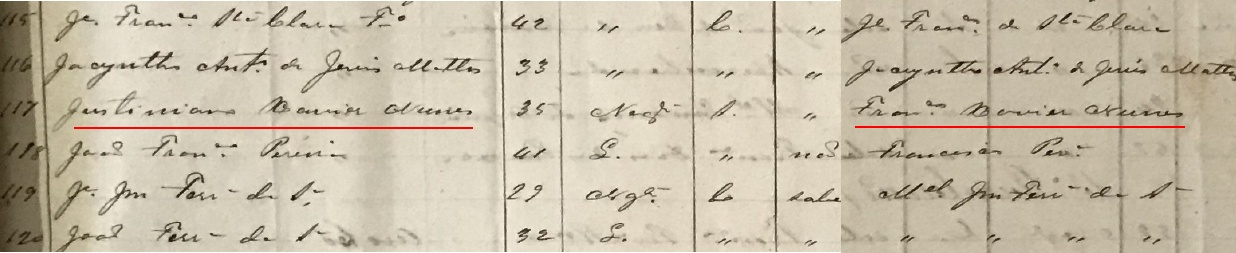 115 Je. Franco. Sta Clara Fo. 42 " C. " Je Franco. de Sta Clara
116 Jacyntho Anto. de Jesus Mattos 33 " " " Jacyntho Anto. de Jesus Mattos
117 Justiniano Xavier Nunes 35 Nego. S. " Franco Xavier Nunes
118 João Franco. Pereira 41 L. " não Francisco Pera.
119 Je. Jm Ferra de Sa. 29 Nego. C sabe Mel. Jm Ferra de Sa
120 João Ferra de Sa 32 L. " " " " " "